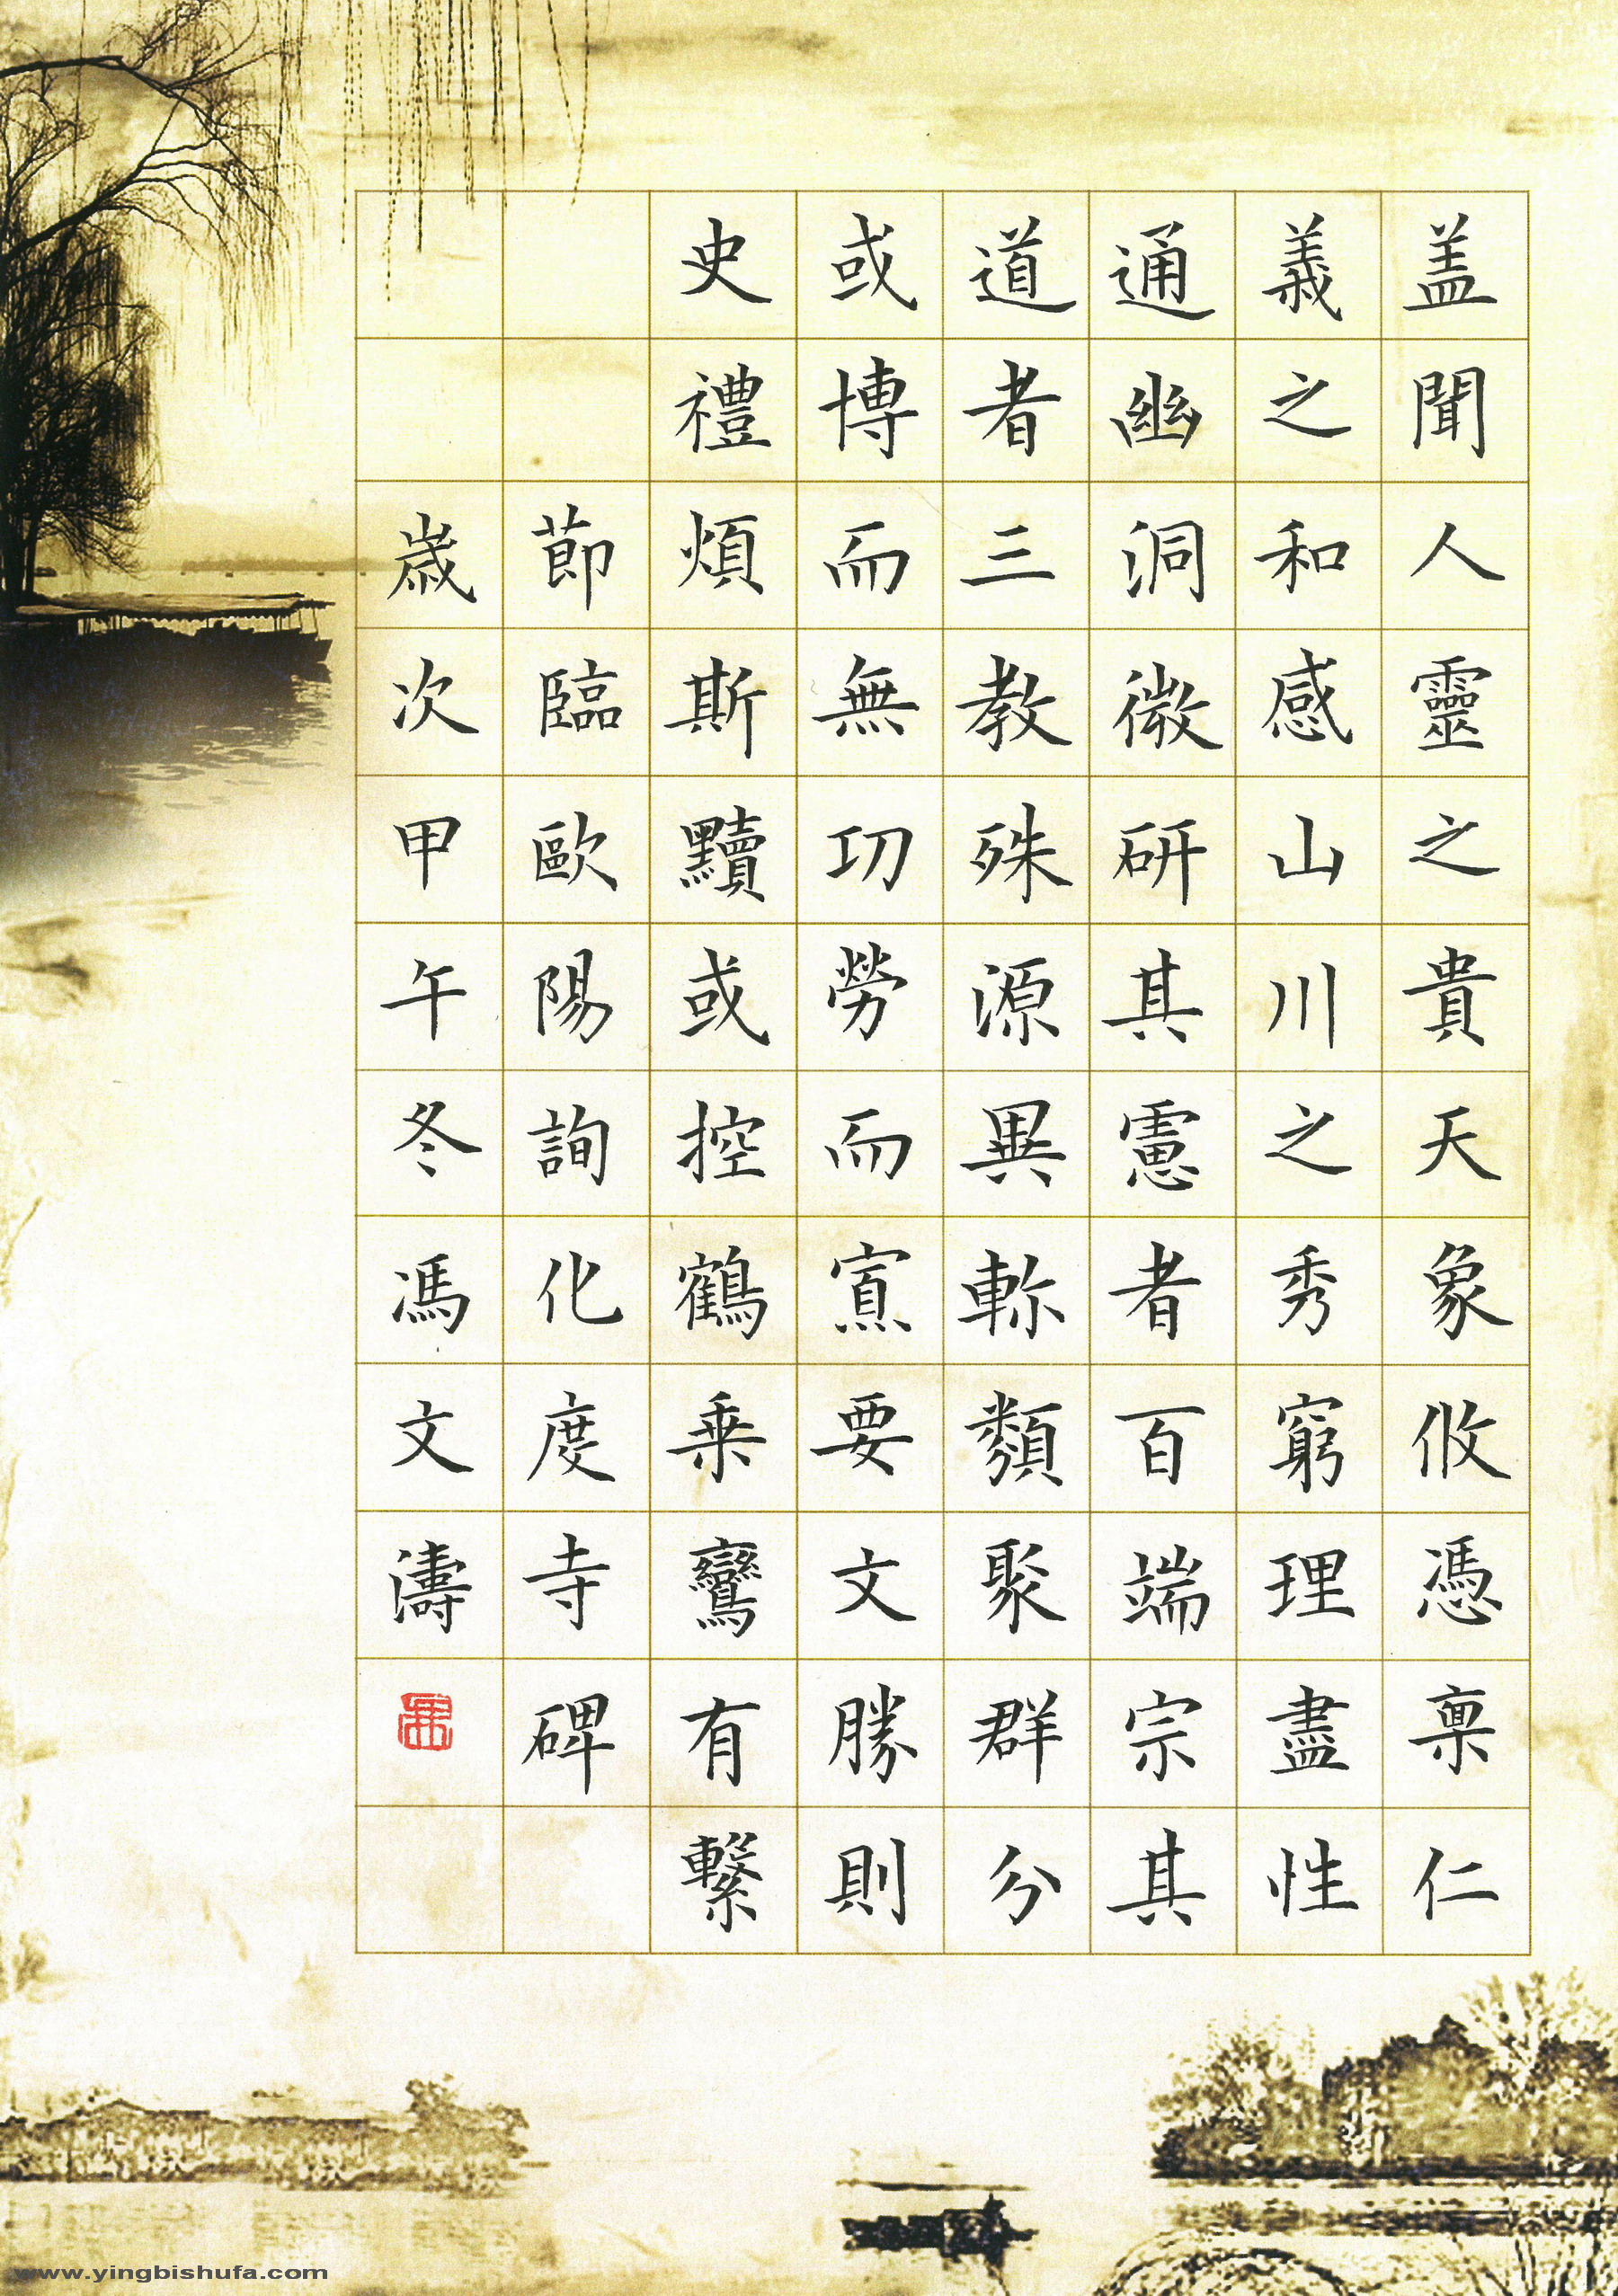 盖聞人靈之貴天象攸憑稟仁
義之和感山川之秀窮理盡性
通幽洞微研其慮者百端宗其
道者三教殊源異軫類聚群分
或博而無功勞而寡要文勝則
史禮煩斯黷或控鶴乗鸞有繫
節臨歐陽詢化度寺碑
歳次甲午冬馮文濤
www.yingbishufa.com